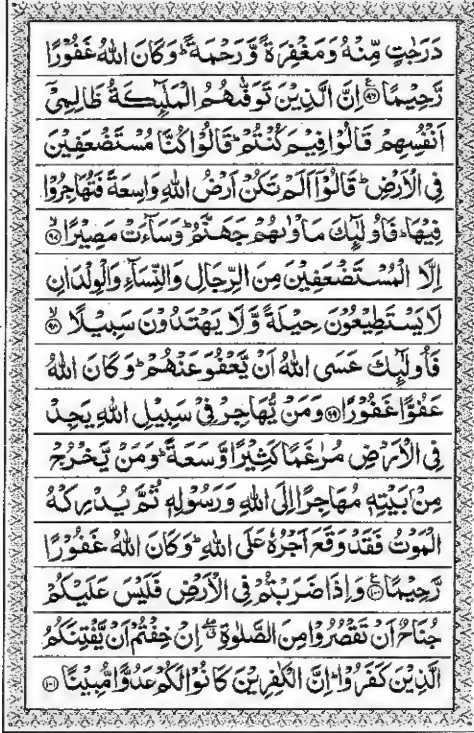 دَرَجٰتٍ مِّنْهُ وَمَغْفِرَةً وَّرَحْمَةً ؕ وَكَانَ اللّٰهُ غَفُوْرًا
رَّحِيْمًا ﴿۹۶﴾ ع اِنَّ الَّذِيْنَ تَوَفّٰٮهُمُ الْمَلٰٓٮِٕكَةُ ظَالِمِىْۤ
اَنْفُسِهِمْ قَالُوْا فِيْمَ كُنْتُمْ ؕ قَالُوْا كُنَّا مُسْتَضْعَفِيْنَ
فِى الْاَرْضِ ؕ قَالُوْۤا اَلَمْ تَكُنْ اَرْضُ اللّٰهِ وَاسِعَةً فَتُهَاجِرُوْا
فِيْهَا ؕ فَاُولٰٓٮِٕكَ مَاْوٰٮهُمْ جَهَنَّمُ ؕ وَسَآءَتْ مَصِيْرًا ۙ﴿۹۷﴾
اِلَّا الْمُسْتَضْعَفِيْنَ مِنَ الرِّجَالِ وَالنِّسَآءِ وَالْوِلْدَانِ
لَا يَسْتَطِيْعُوْنَ حِيْلَةً وَّلَا يَهْتَدُوْنَ سَبِيْلًا ۙ﴿۹۸﴾
فَاُولٰٓٮِٕكَ عَسَى اللّٰهُ اَنْ يَّعْفُوَ عَنْهُمْ ؕ وَكَانَ اللّٰهُ
عَفُوًّا غَفُوْرًا ﴿۹۹﴾ وَمَنْ يُّهَاجِرْ فِىْ سَبِيْلِ اللّٰهِ يَجِدْ
فِى الْاَرْضِ مُرٰغَمًا كَثِيْرًا وَّسَعَةً ؕ وَمَنْ يَّخْرُجْ
مِنْۢ بَيْتِهٖ مُهَاجِرًا اِلَى اللّٰهِ وَرَسُوْلِهٖ ثُمَّ يُدْرِكْهُ
الْمَوْتُ فَقَدْ وَقَعَ اَجْرُهٗ عَلَى اللّٰهِ ؕ وَكَانَ اللّٰهُ غَفُوْرًا
رَّحِيْمًا ﴿۱۰۰﴾ ع وَاِذَا ضَرَبْتُمْ فِى الْاَرْضِ فَلَيْسَ عَلَيْكُمْ
جُنَاحٌ اَنْ تَقْصُرُوْا مِنَ الصَّلٰوةِ ۖ اِنْ خِفْتُمْ اَنْ يَّفْتِنَكُمُ
الَّذِيْنَ كَفَرُوْا ؕ اِنَّ الْكٰفِرِيْنَ كَانُوْا لَكُمْ عَدُوًّا مُّبِيْنًا ﴿۱۰۱﴾